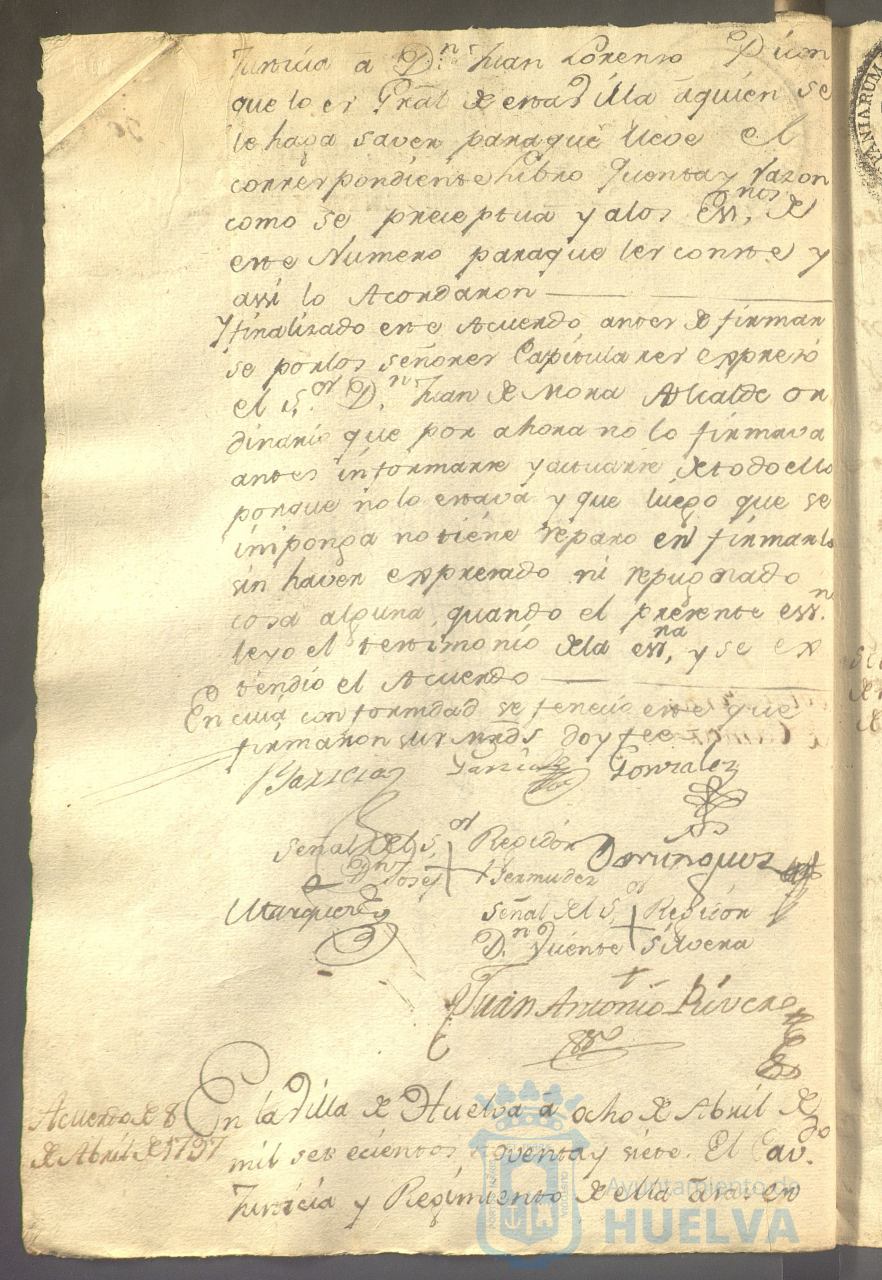 Justicia a D.n Juan Lorenzo Picon
que lo es Gral de esta Villa aquien se
le haga saver paraque lleve el
correspondiente Libro Quenta y razon
como se preceptua y alos Essnos, de
este Numero paraque les conste y
assi lo Acordaron
Yfinalizado este Acuerdo antes de firmar
se porlos señores Capitulares expresó
el S.or D.n Juan de Mora Alcalde or
dinario que por ahora no lo firmava
antes informarse yactuarse detodo ello
porque no lo estava y que luego que se
imponga notiene reparo en firmarlo
sin haver expresado ni repugnado
cosa alguna, quando el presente essn.
leyo el testimonio dela essna, y se ex
tendio el Acuerdo
En cuia conformidad se fenecio este que
firmaron sus mrds doy fee
Garcia Gonzalez
Señal del S.or Regidor Dominguez
D.n José + Bermudez
Marquez Señal del S.or Regidor
D.n Vicente + Silvera
Juan Antonio Rivera
Acuerdo de 8
de Abril de 1797
En la Villa de Huelva a ocho de Abril de
mil setecientos noventa y siete. El Cav.do
Justicia y Regimiento de ella en
Ayuntamiento de
HUELVA